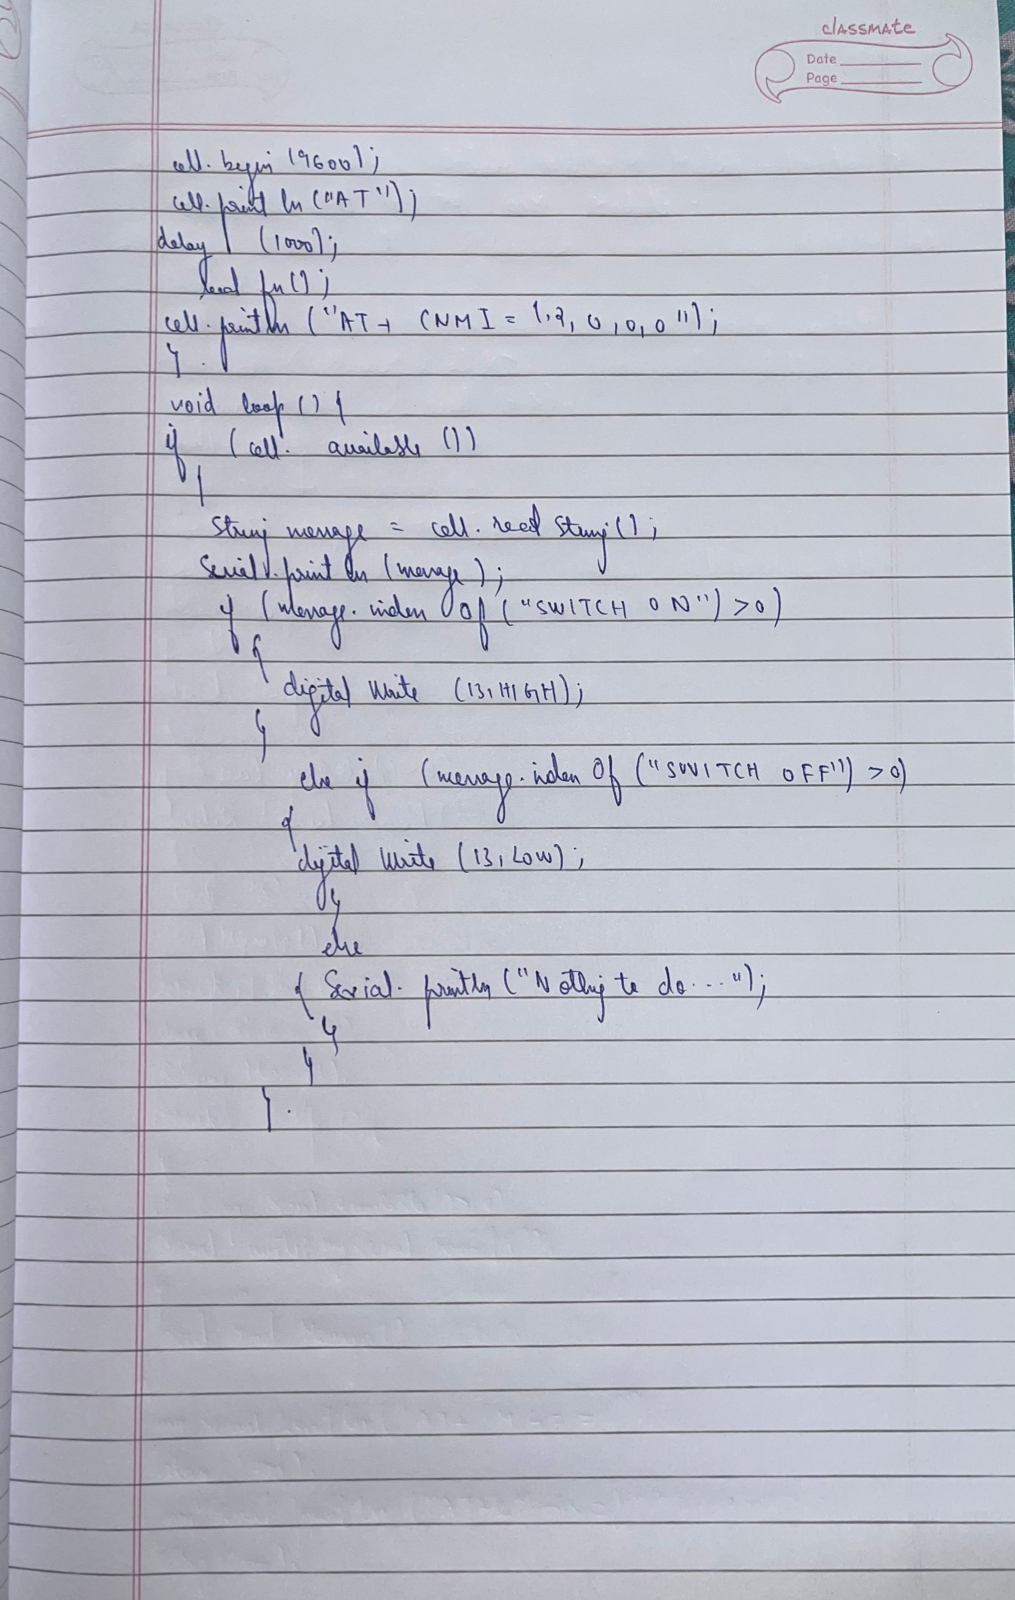 classmate
Date
Page
cell.begin (9600);
cell.print ln ("AT");
delay (1000);
read fn();
cell.println ("AT+ CNMI = 1,2,0,0,0");
}.
void loop () {
if (cell. available ())
{
String message = cell. read String();
Serial.print ln (message);
if (message. index Of ("SWITCH ON") >0)
{
digital Write (13, HIGH);
}
else if (message. index Of ("SWITCH OFF") >0)
{
digital Write (13, LOW);
}
else
{ Serial. println ("Nothing to do...");
}
}
}.